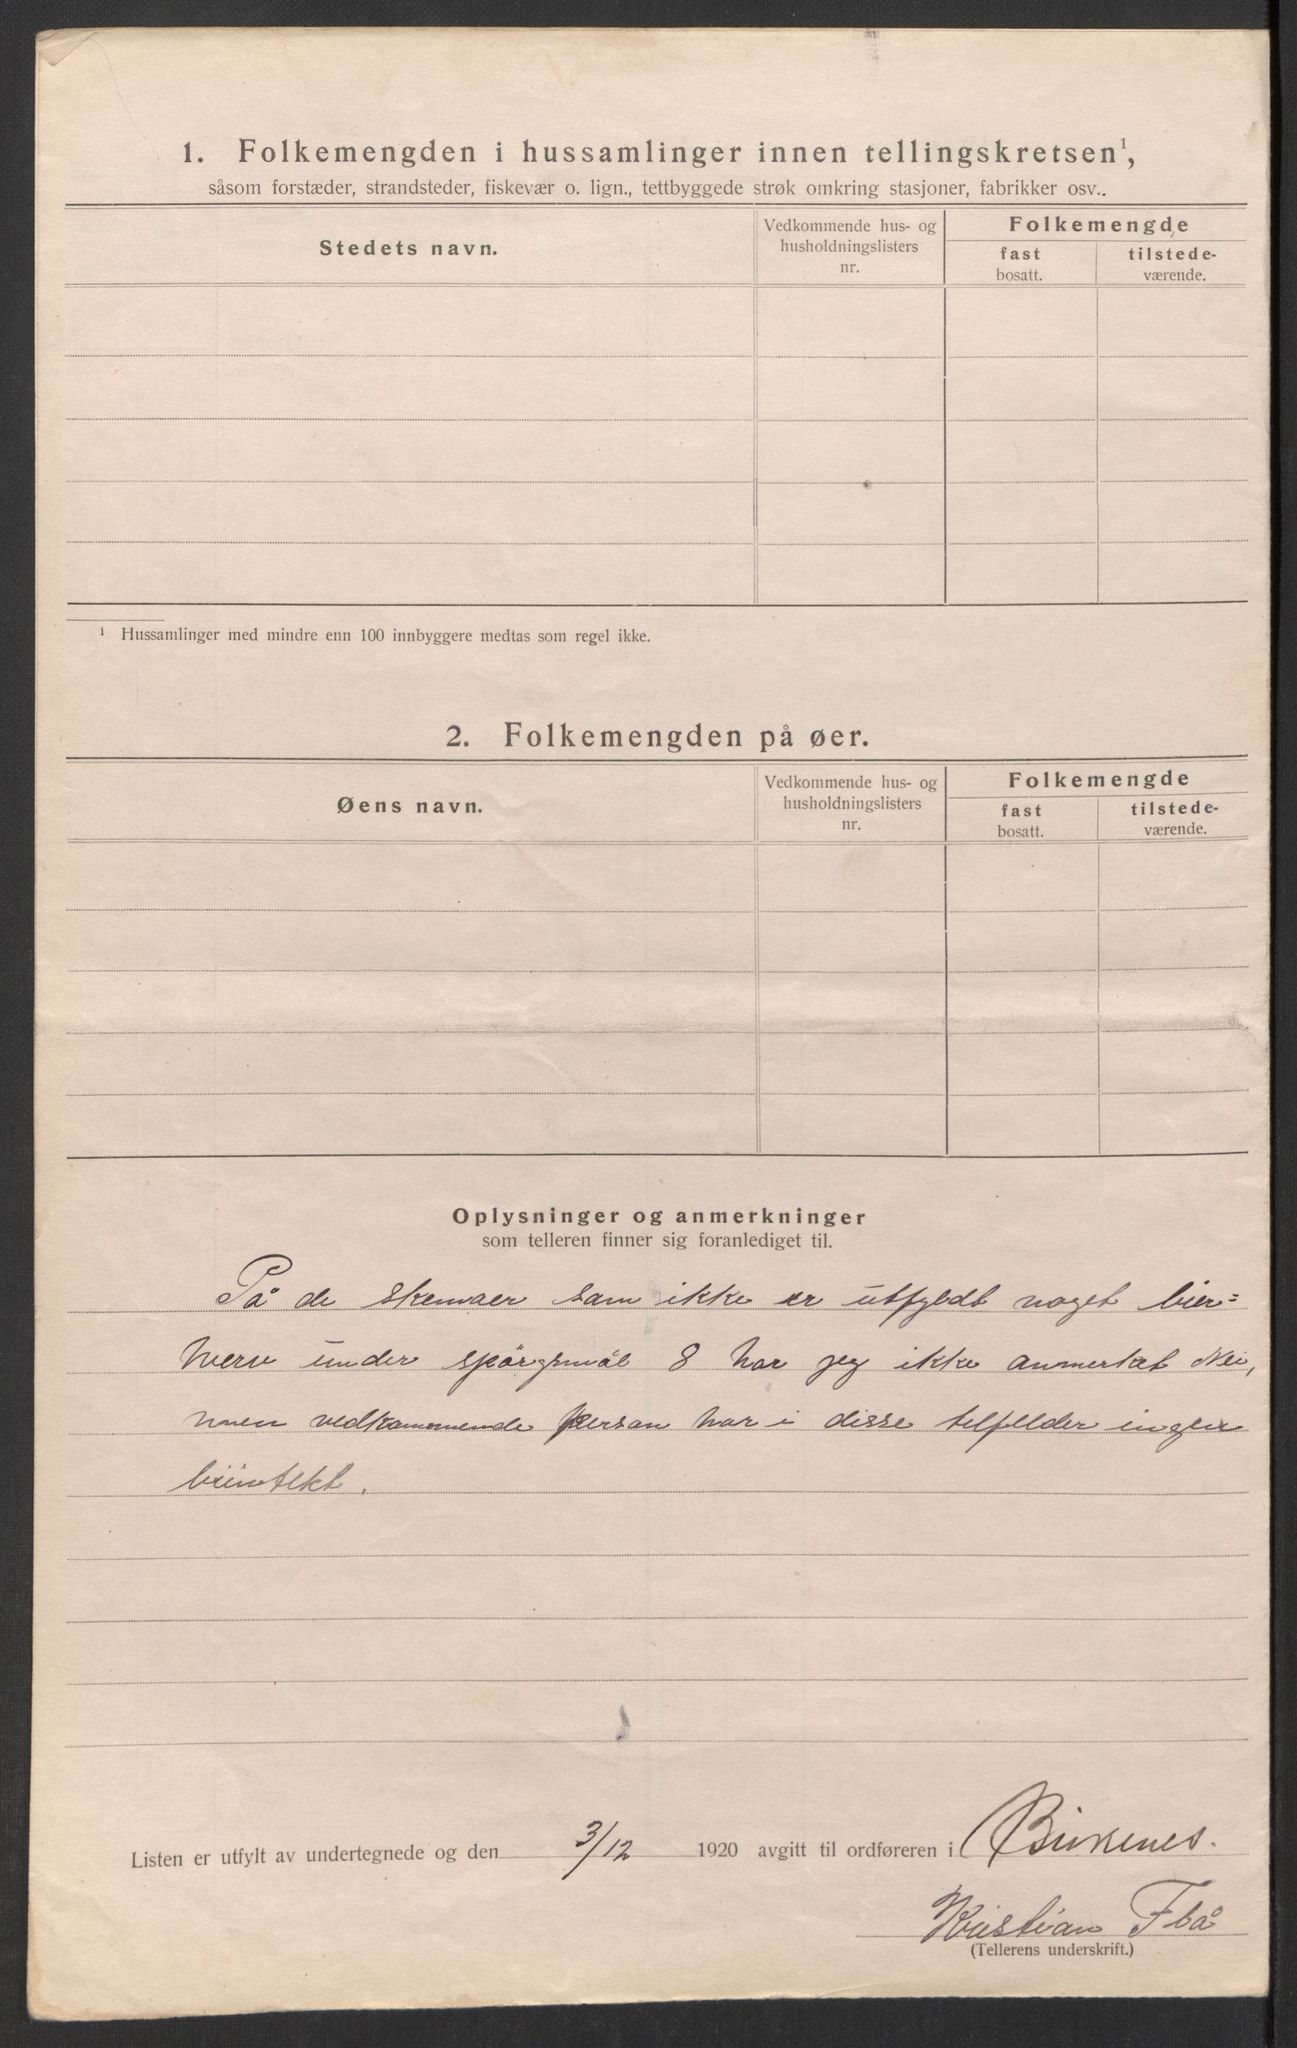 1. Folkemengden i hussamlinger innen tellingskretsen¹,
såsom forstæder, strandsteder, fiskevær o. lign., tettbyggede strøk omkring stasjoner, fabrikker osv..
Stedets navn.
Vedkommende hus- og
husholdningslisters
nr.
Folkemengde
fast
bosatt.
tilstede-
værende.
¹ Hussamlinger med mindre enn 100 innbyggere medtas som regel ikke.
2. Folkemengden på øer.
Øens navn.
Vedkommende hus- og
husholdningslisters
nr.
Folkemengde
fast
bosatt.
tilstede-
værende.
Oplysninger og anmerkninger
som telleren finner sig foranlediget til.
På de skemaer som ikke er utfyldt noget bier=
hverv under spörgsmål 8 har jeg ikke anmerket Nei,
men vedkommende person har i disse tilfelder ingen
biinntekt.
Listen er utfylt av undertegnede og den 3/12 1920 avgitt til ordføreren i Birkenes.
Kristian Flå
(Tellerens underskrift.)